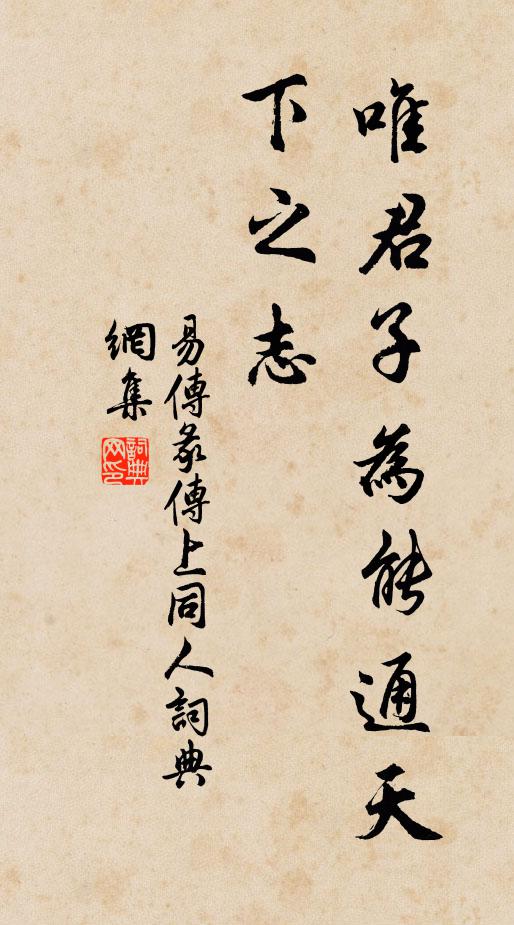 唯君子為能通天
下之志
易傳彖傳上同人詞典
網集
詞典
网印